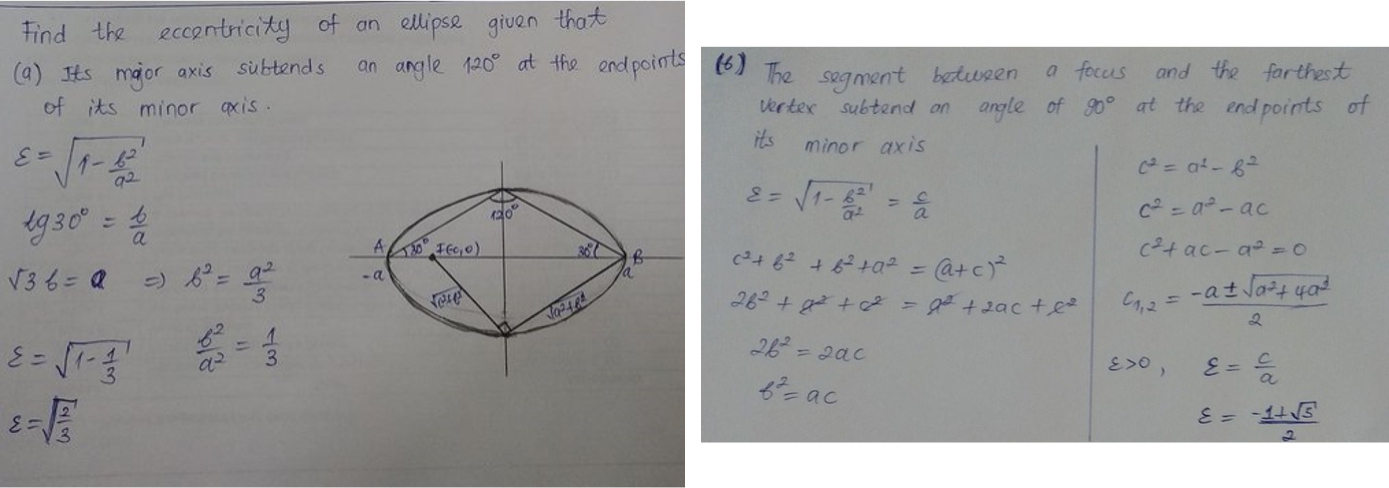 Find the eccentricity of an ellipse given that
(a) Its major axis subtends an angle 120° at the endpoints
of its minor axis.
ε = √(1 - b²/a²)
tg30° = b/a
√3 b = a ⇒ b² = a²/3
b²/a² = 1/3
ε = √(1 - 1/3)
ε = √(2/3)
120°
A 30° F(c,0) 30° B
-a a
√(c²+b²) √(a²+b²)
(b) The segment between a focus and the farthest
vertex subtend an angle of 90° at the endpoints of
its minor axis
ε = √(1 - b²/a²) = c/a
c² + b² + b² + a² = (a+c)²
2b² + a² + c² = a² + 2ac + c²
2b² = 2ac
b² = ac
c² = a² - b²
c² = a² - ac
c² + ac - a² = 0
c₁,₂ = (-a ± √(a² + 4a²))/2
ε>0, ε = c/a
ε = (-1+√5)/2